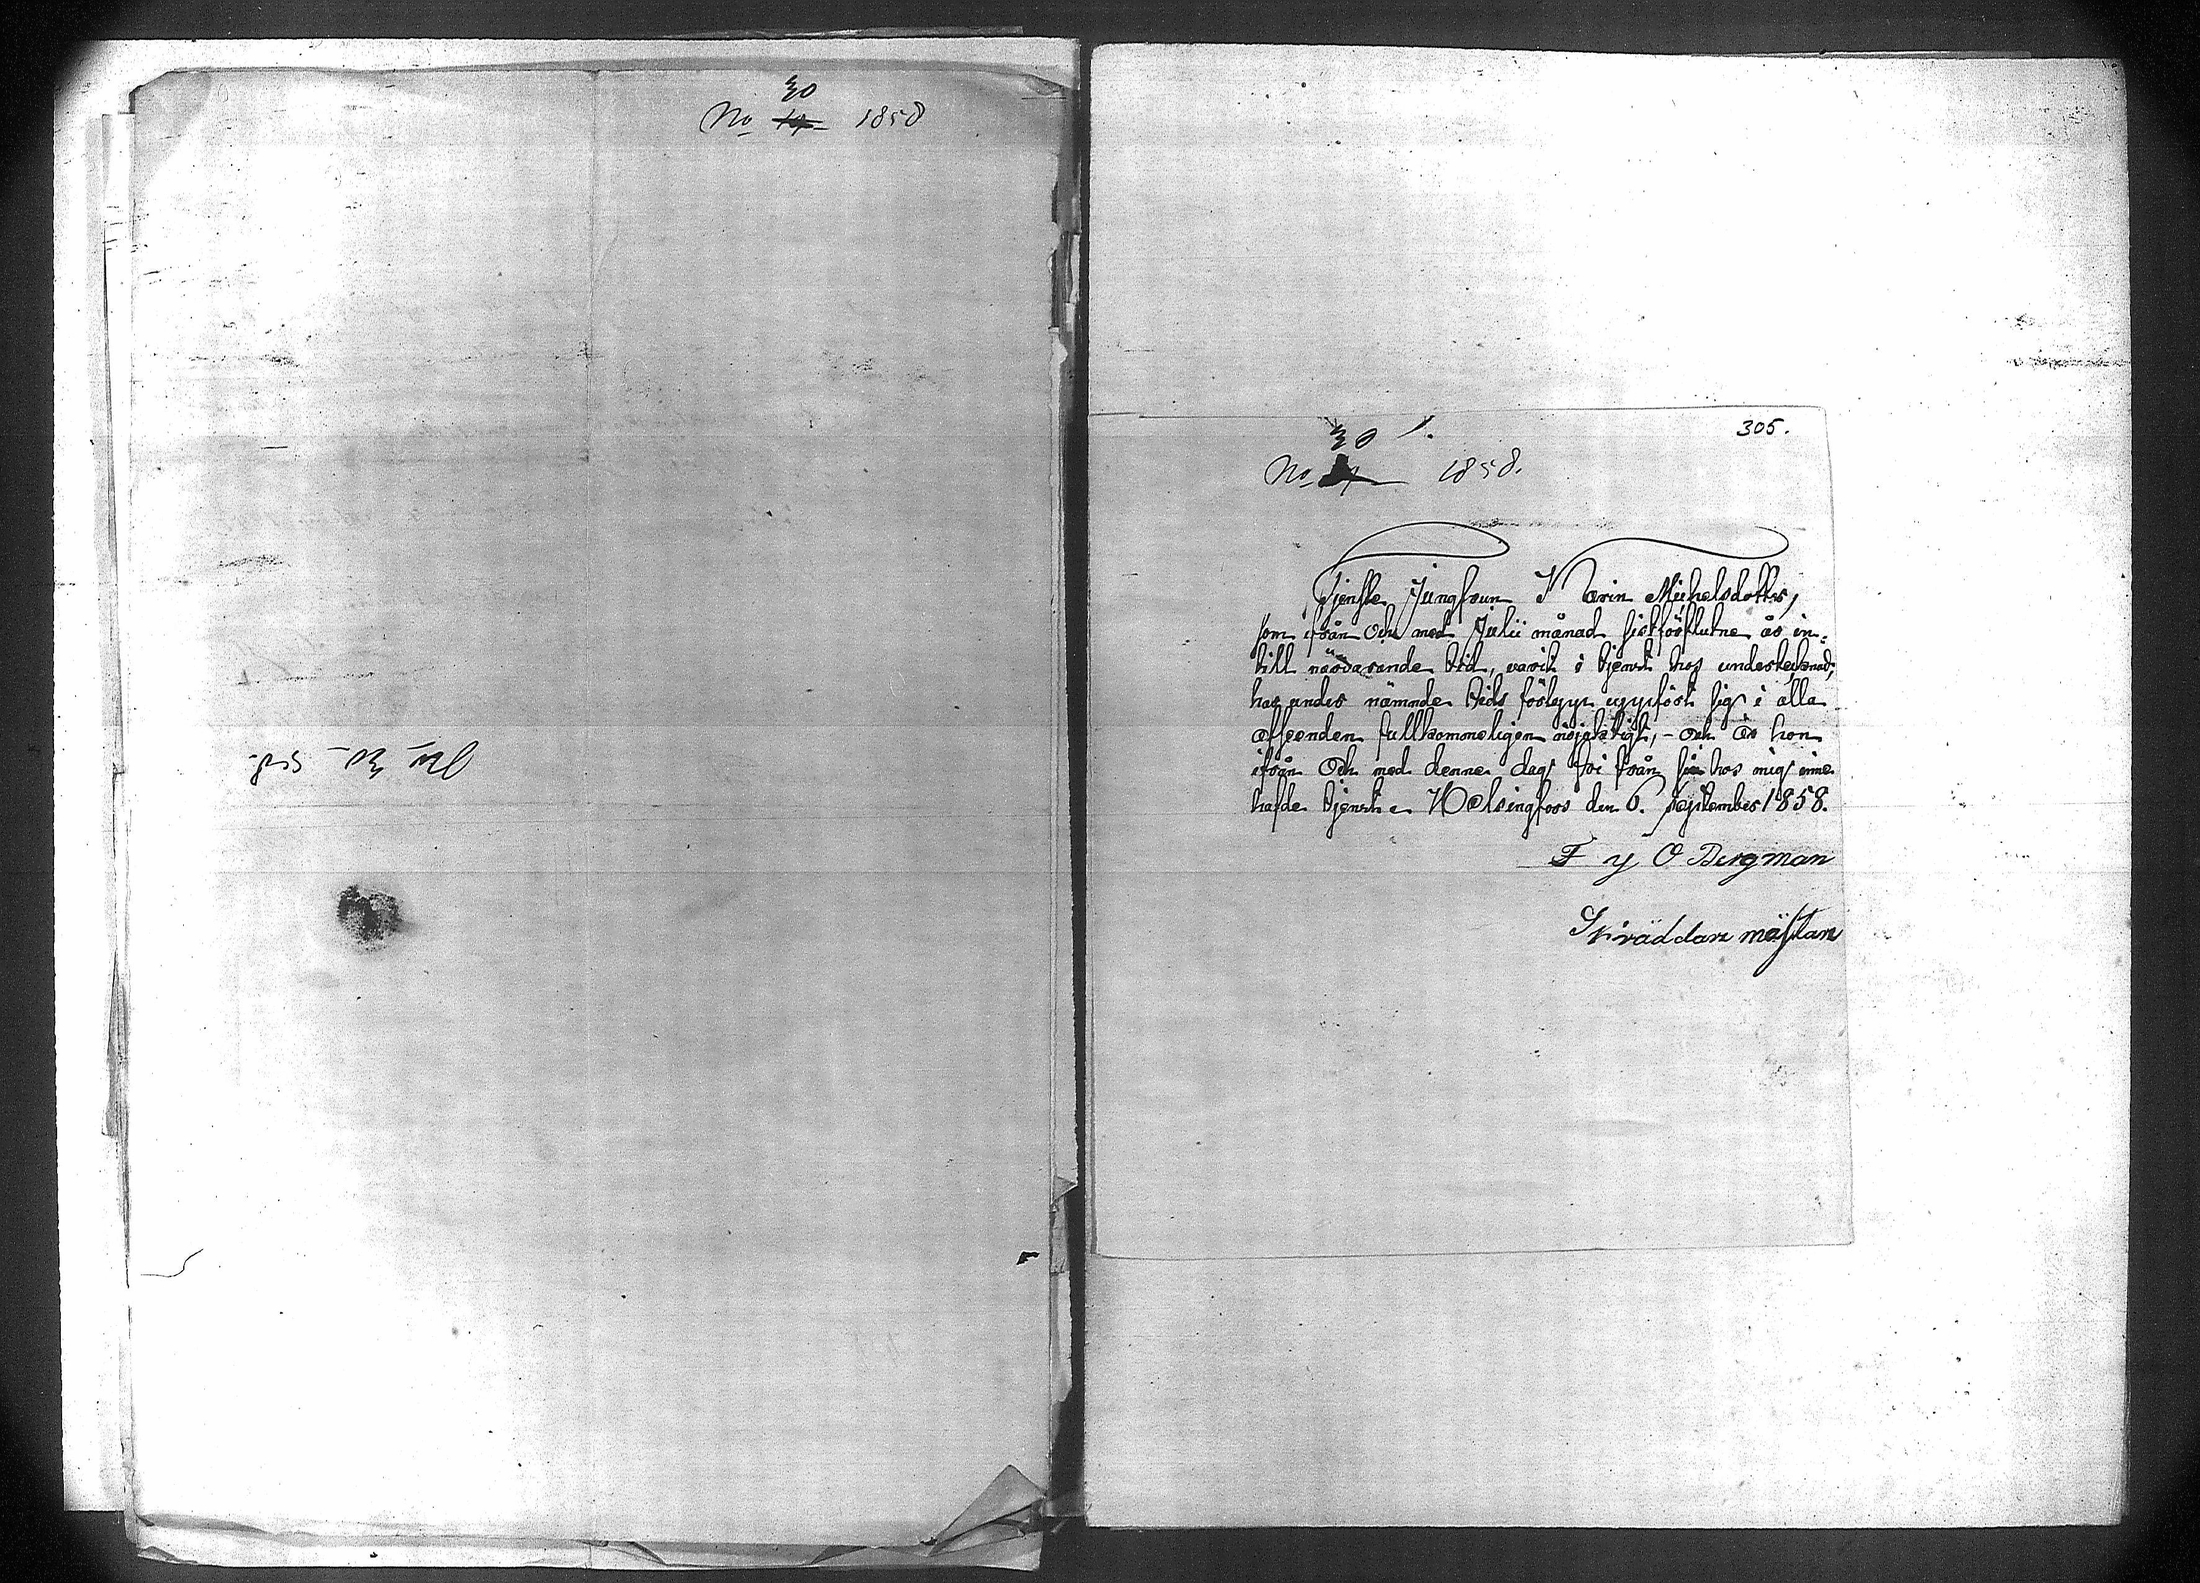 30
No 14 1858
No 30 1858.
305.
30 1.
No 14 1858.
Tjenste Jungfrun Karin Michelsdotter,
som ifrån Och med Julii månad sistförflutne år in-
till närvarande tid, varit i tjenst hos undertecknad;
har under nämnde tids förlopp uppfört sig i alla
afseenden fullkommeligen nöjaktigt, - och är hon
ifrån Och med denne dag fri från sin hos mig inne
hafde tjenst. Helsingfors den 6. September 1858.
F y O Bergman
Skräddare mästare